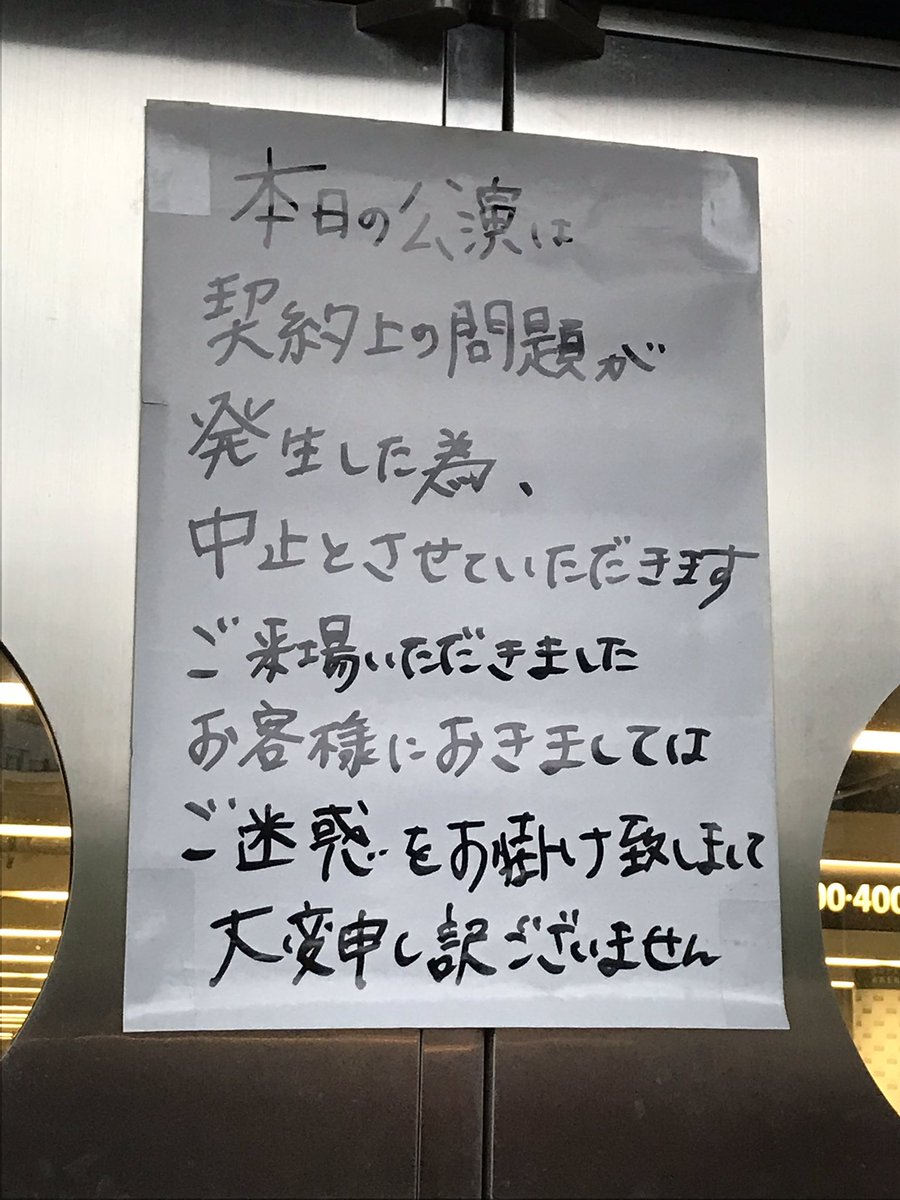 本日の公演は
契約上の問題が
発生した為、
中止とさせていただきます
ご来場いただきました
お客様におきましては
ご迷惑をお掛け致しまして
大変申し訳ございません
00・400